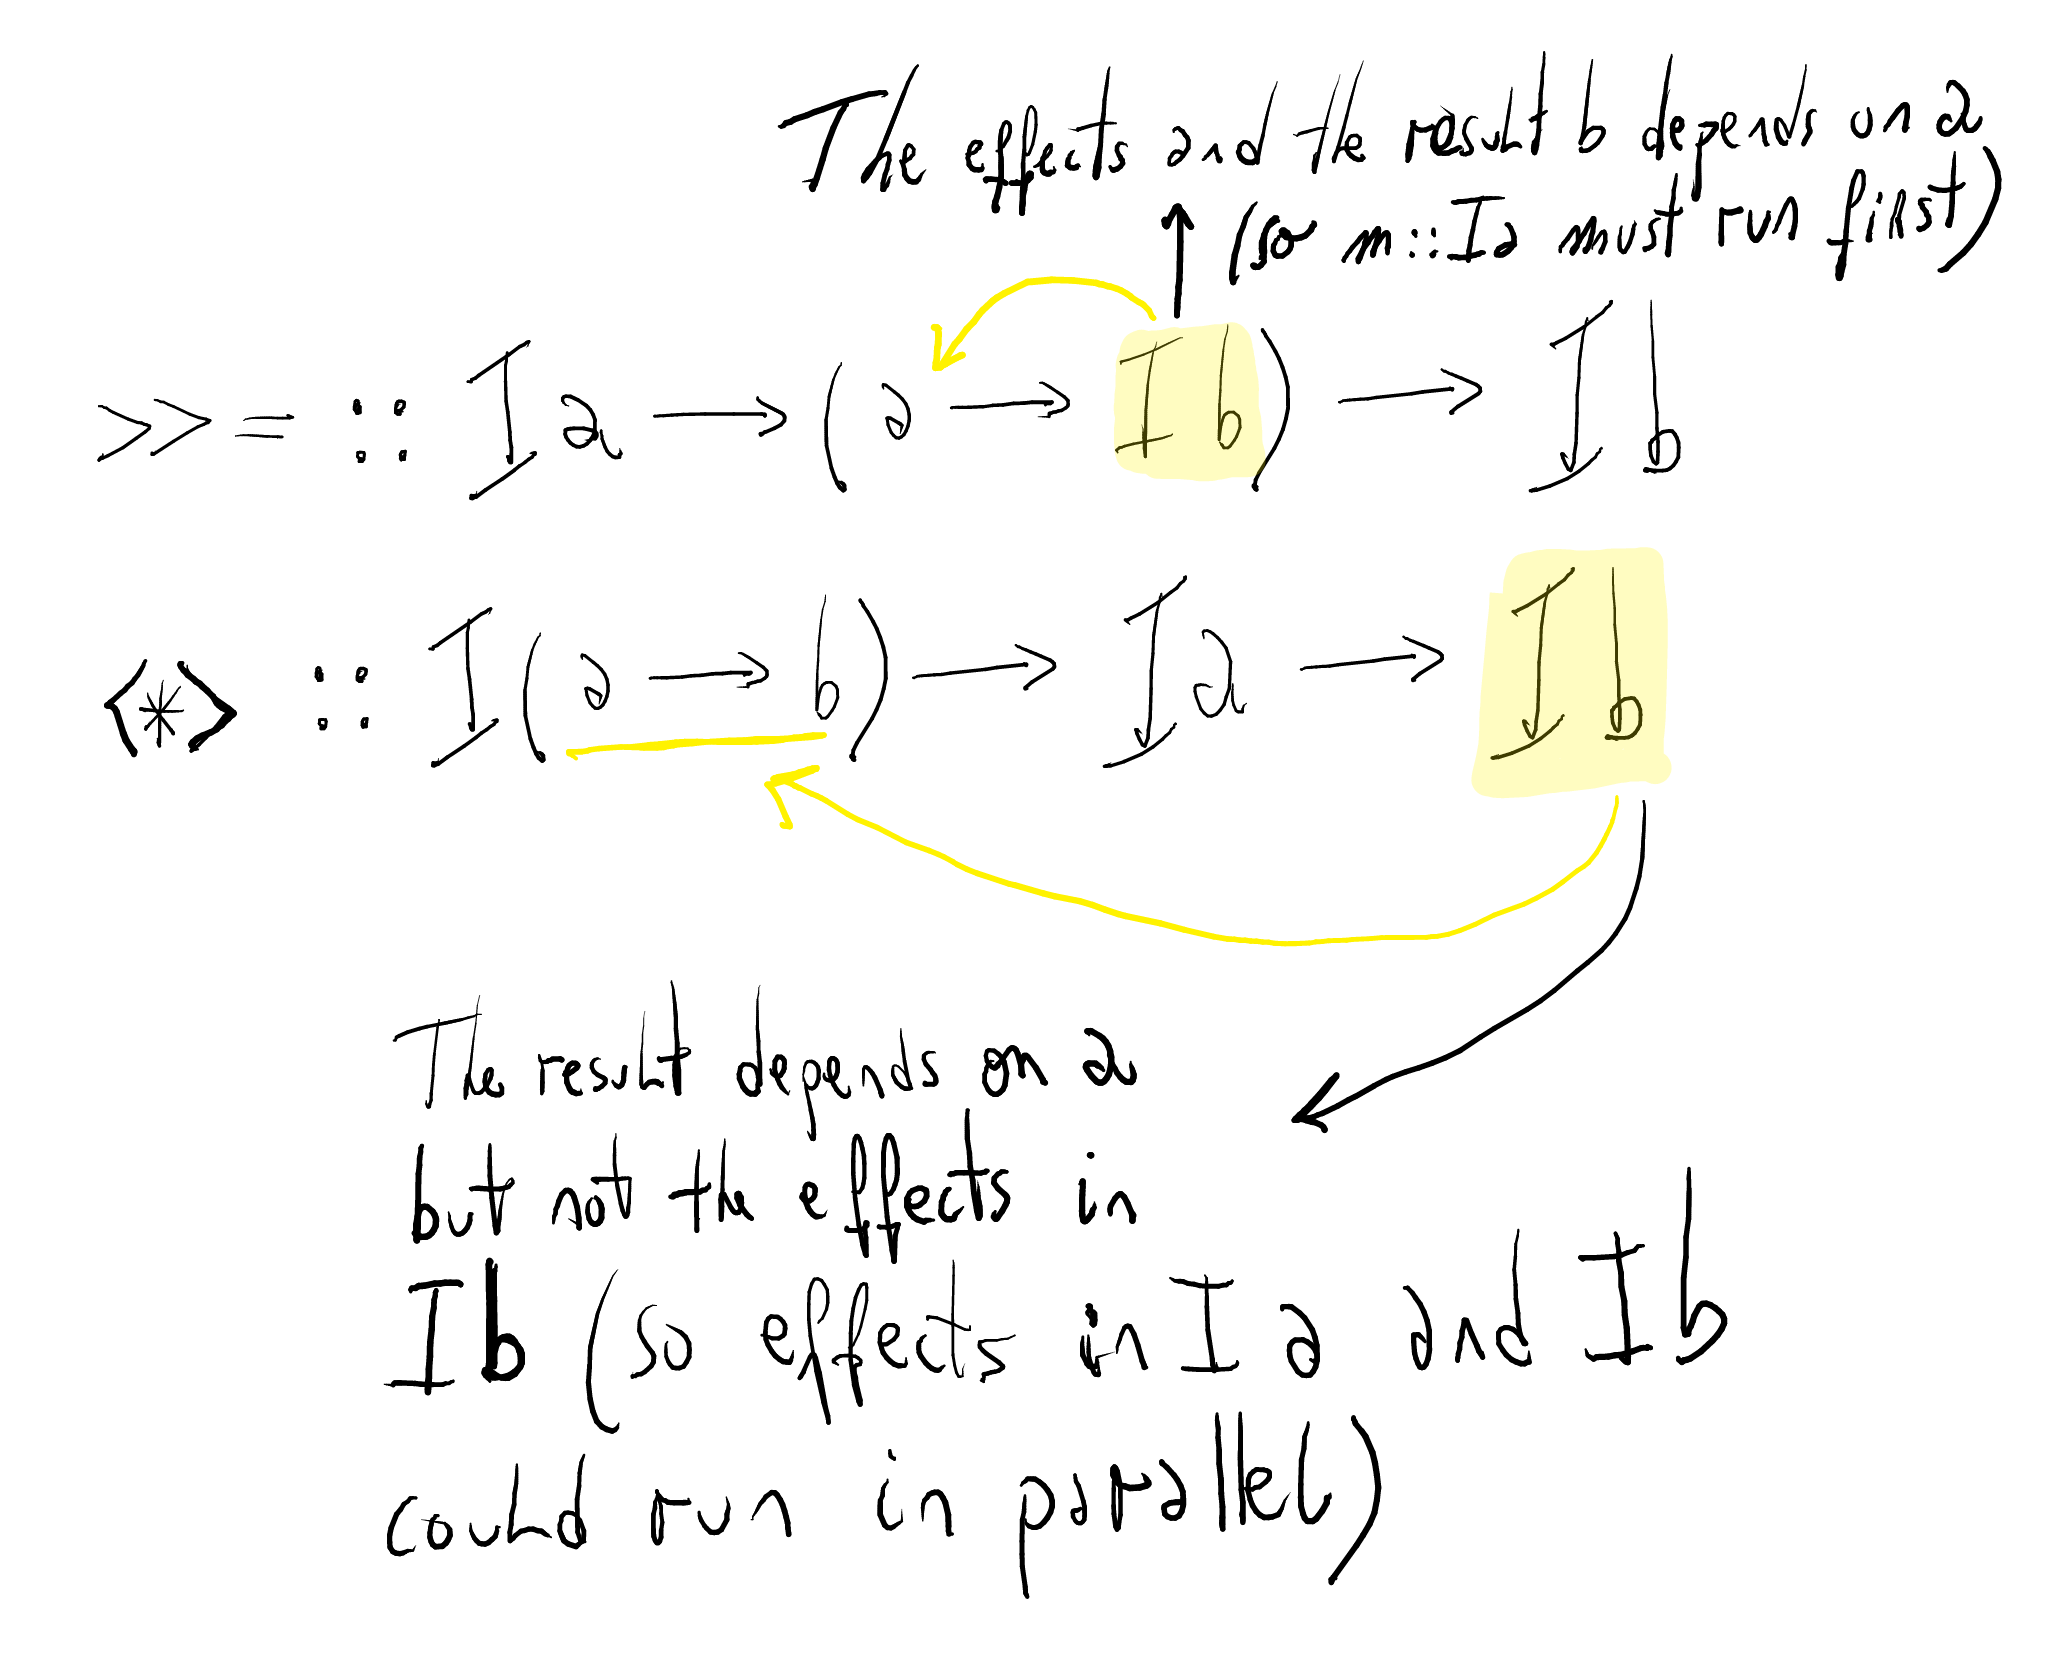 The effects and the result b depends on a
(so m::Ia must run first)
>>= :: I a → (a → I b) → I b
<*> :: I (a → b) → I a → I b
The result depends on a
but not the effects in
I b (so effects in I a and I b
could run in parallel)